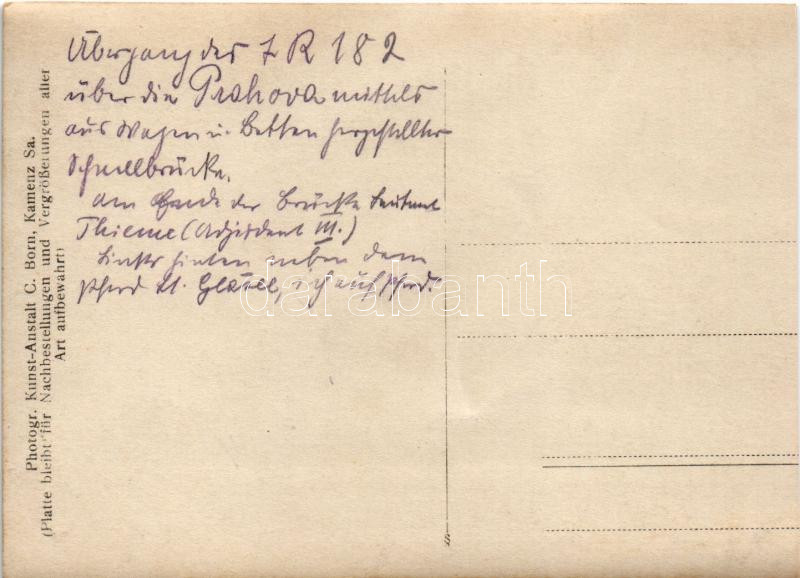 Übergang des I R 182
über die Prahova mittels
aus Wagen u. Betten hergestellter
Schnellbrücke.
am Ende der Brücke Leutnant
Thieme (Adjutant III.)
Links hinten neben dem
Pferd Lt. Gläsel, ich auf Pferd.
Photogr. Kunst-Anstalt C. Born, Kamenz Sa.
(Platte bleibt für Nachbestellungen und Vergrößerungen aller
Art aufbewahrt)
darabanth